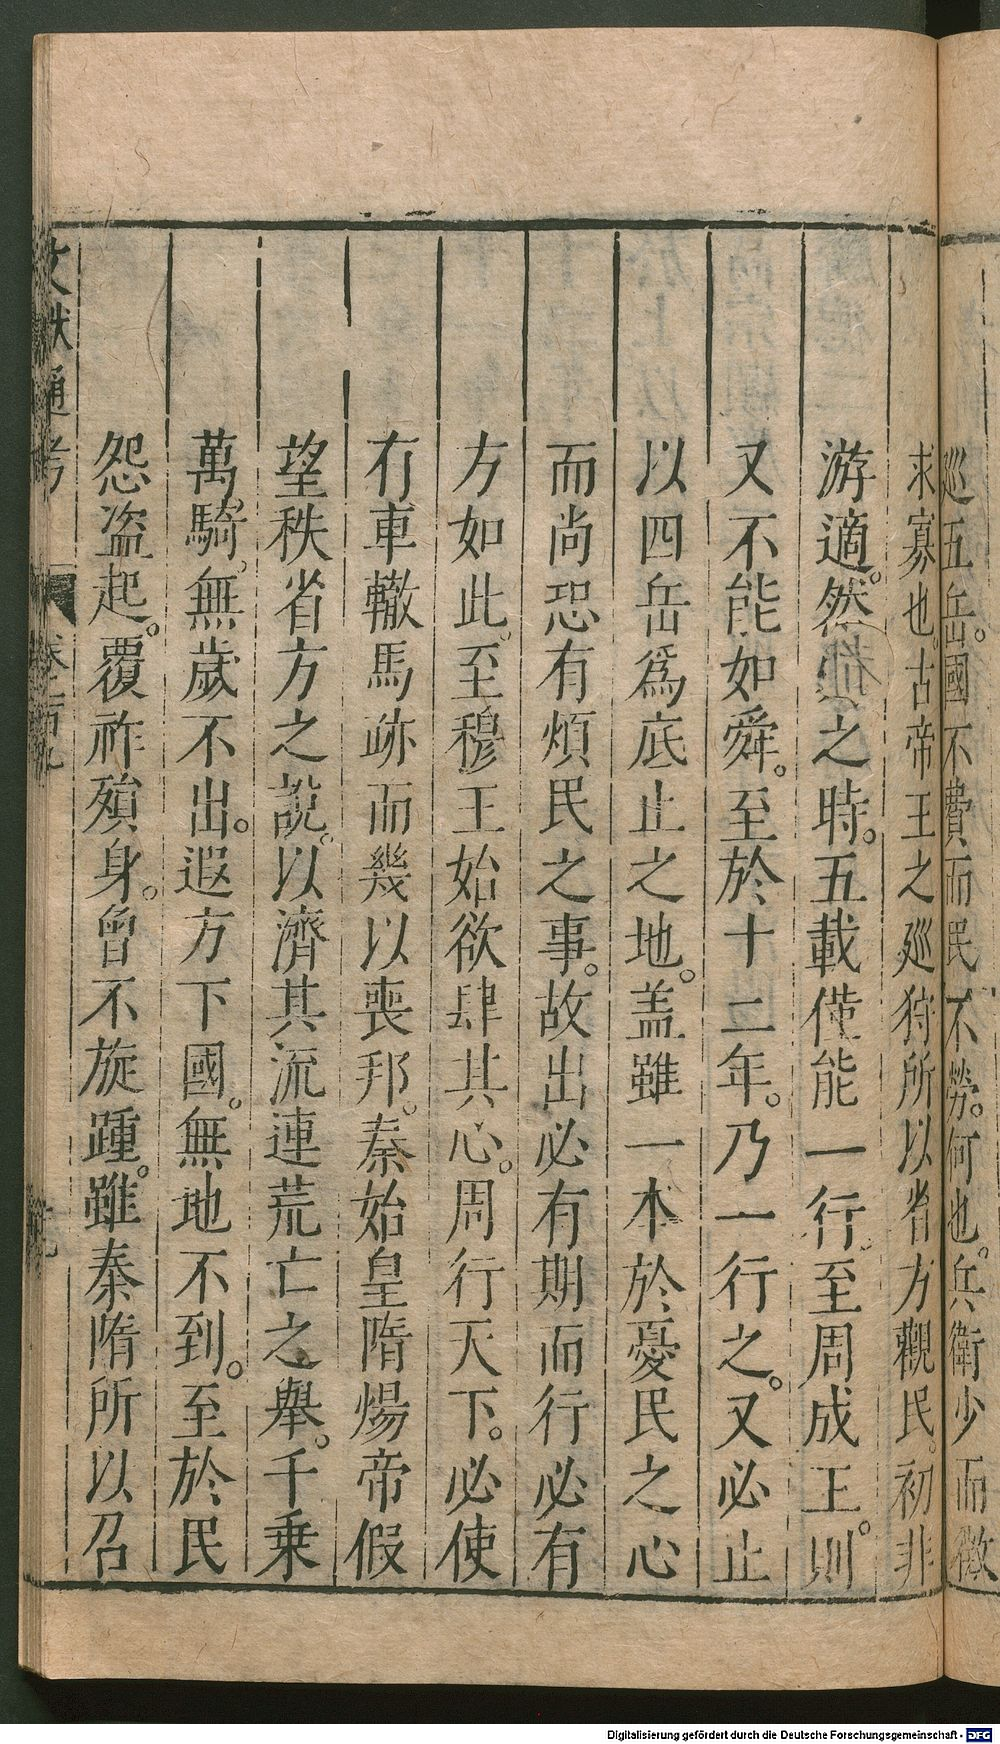 巡五岳。國不費而民不勞。何也。兵衛少而徵
求寡也。古帝王之廵狩所以省方觀民。初非
游適。然之時。五載僅能一行。至周成王。則
又不能如舜。至於十二年。乃一行之。又必止
以四岳爲底止之地。盖雖一本於憂民之心
而尚恐有煩民之事。故出必有期而行必有
方如此。至穆王始欲肆其心。周行天下。必使
有車轍馬跡而幾以喪邦。秦始皇隋煬帝假
望秩省方之說。以濟其流連荒亡之舉。千乗
萬騎。無歲不出。遐方下國。無地不到。至於民
怨盜起。覆祚殞身。曾不旋踵。雖秦隋所以召
文獻通考
Digitalisierung gefördert durch die Deutsche Forschungsgemeinschaft - DFG